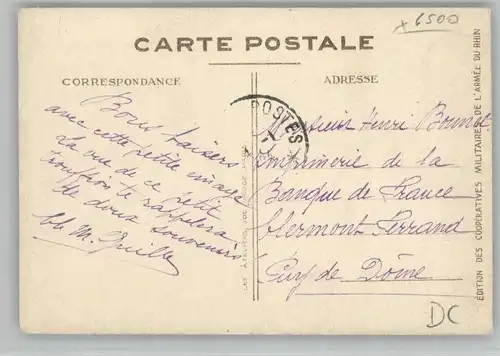 x 6500
CARTE POSTALE
CORRESPONDANCE
ADRESSE
Bons baisers
avec cette petite image
La vue de ce petit
te rappelera
de doux souvenirs
M.
POSTES
Monsieur Henri Brunet
Imprimerie de la
Banque de France
Clermont Ferrand
Puy de Dôme
ÉDITION DES COOPÉRATIVES MILITAIRES DE L'ARMÉE DU RHIN
DC